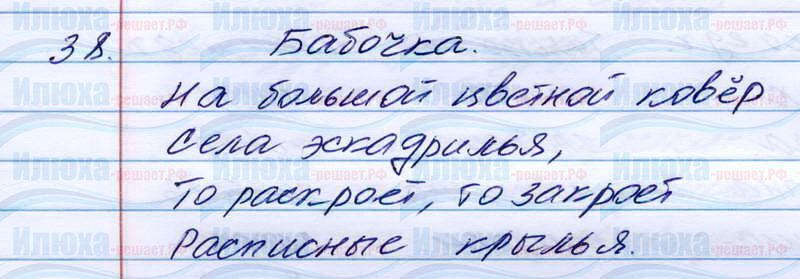 38. Бабочка.
На большой цветной ковёр
Села эскадрилья,
То раскроет, то закроет
Расписные крылья.